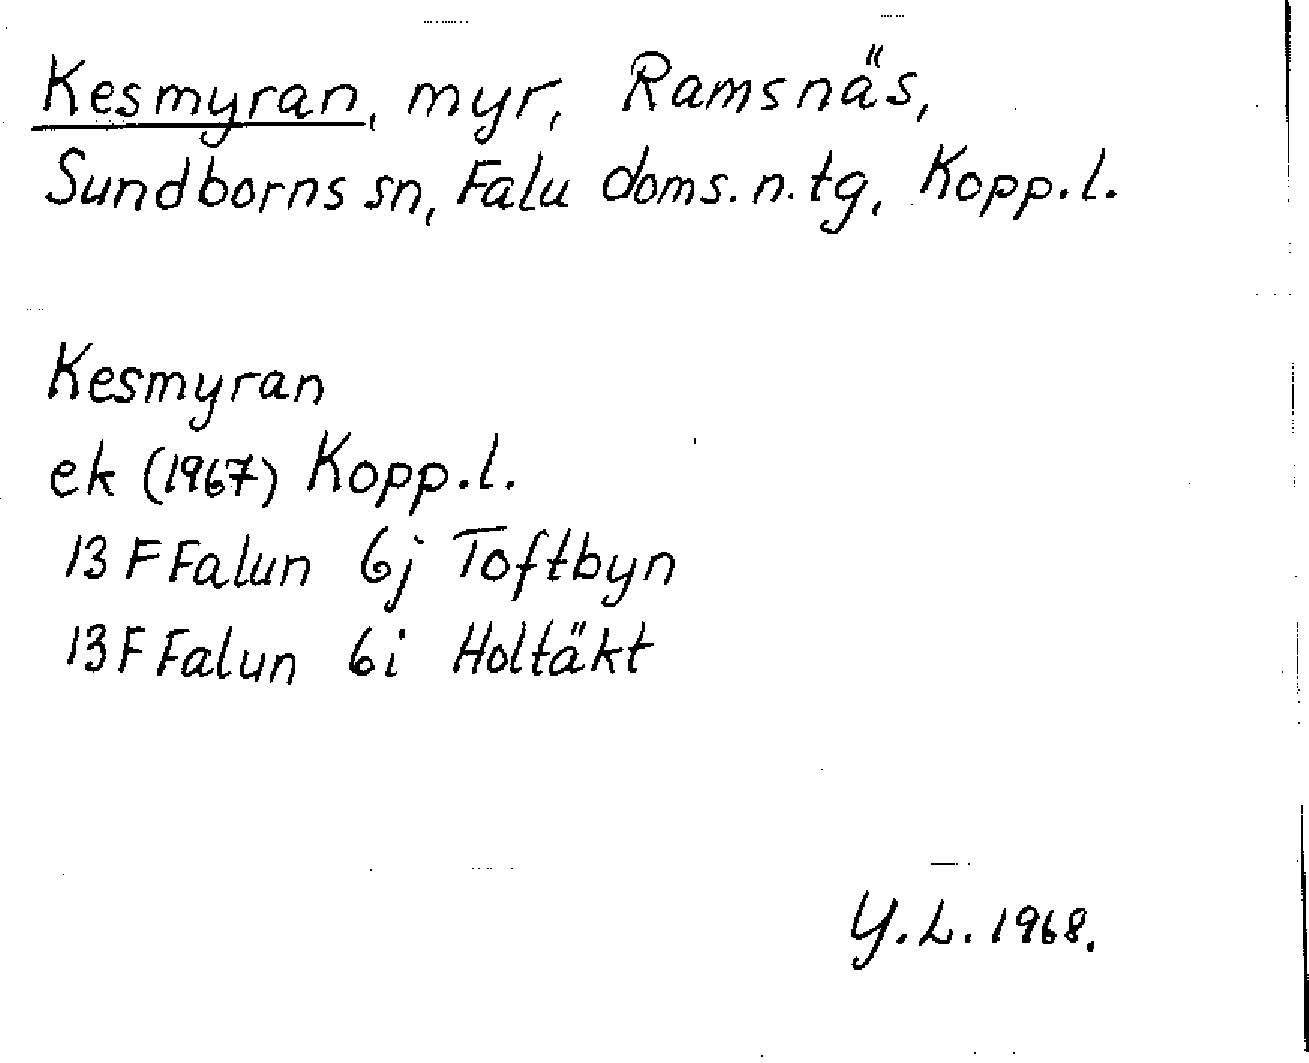 Kesmyran, myr, Ramsnäs,
Sundborns sn, Falu doms. n. tg, Kopp. l.
Kesmyran
ek (1967) Kopp. l.
13 F Falun 6j Toftbyn
13 F Falun 6i Holtäkt
Y. L. 1968.